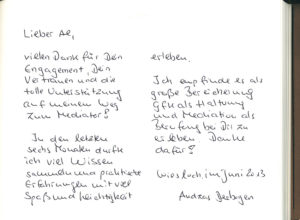 Lieber Al,
vielen Dank für Dein
Engagement, Dein
Vertrauen und die
tolle Unterstützung
auf meinem Weg
zum Mediator!
In den letzten
sechs Monaten durfte
ich viel Wissen
sammeln und praktische
Erfahrungen mit viel
Spaß und Leichtigkeit
erleben.
Ich empfinde es als
große Bereicherung
GfK als Haltung
und Mediation als
Berufung bei Dir zu
erleben Danke
dafür!
Wiesloch, im Juni 2013
Andreas